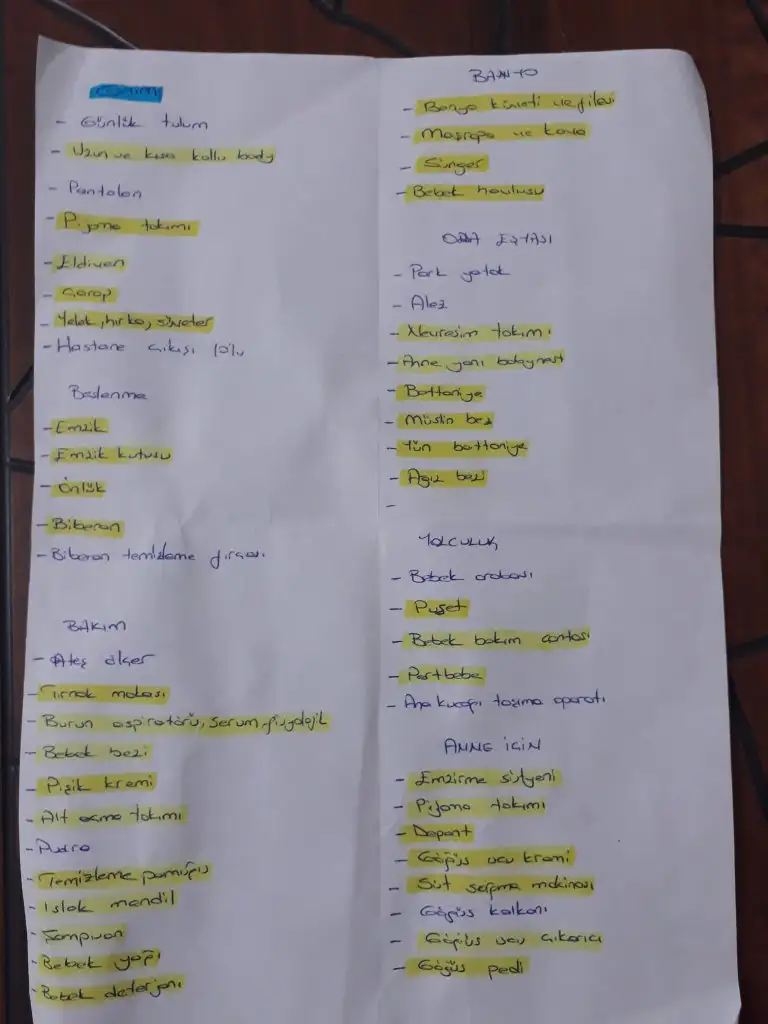 GİYİM
- Günlük tulum
- Uzun ve kısa kollu body
- Pantolon
- Pijama takımı
- Eldiven
- Çorap
- Yelek, hırka, süveter
- Hastane çıkışı 10'lu
Beslenme
- Emzik
- Emzik kutusu
- Önlük
- Biberon
- Biberon temizleme fırçası
BAKIM
- Ateş ölçer
- Tırnak makası
- Burun aspiratörü, serum fizyolojik
- Bebek bezi
- Pişik kremi
- Alt açma takımı
- Pudra
- Temizleme pamuğu
- Islak mendil
- Şampuan
- Bebek yağı
- Bebek deterjanı
BANYO
- Banyo küveti ve filesi
- Maşrapa ve kova
- Sünger
- Bebek havlusu
ODA EŞYASI
- Park yatak
- Alez
- Nevresim takımı
- Anne yanı babynest
- Battaniye
- Müslin bez
- Yün battaniye
- Ağız bezi
-
YOLCULUK
- Bebek arabası
- Puset
- Bebek bakım çantası
- Portbebe
- Ana kucağı taşıma aparatı
ANNE İÇİN
- Emzirme sütyeni
- Pijama takımı
- Depent
- Göğüs ucu kremi
- Süt sağma makinası
- Göğüs kalkanı
- Göğüs ucu çıkarıcı
- Göğüs pedi